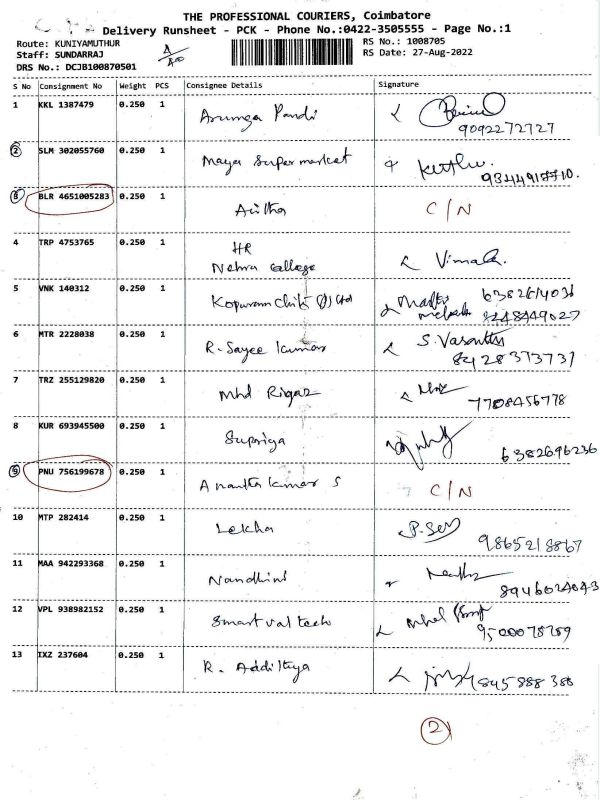 THE PROFESSIONAL COURIERS, Coimbatore
Delivery Runsheet - PCK - Phone No.:0422-3505555 - Page No.:1
Route: KUNIYAMUTHUR
Staff: SUNDARRAJ
DRS No.: DCJB100870501
RS No.: 1008705
RS Date: 27-Aug-2022
S No Consignment No Weight PCS Consignee Details Signature
1 KKL 1387479 0.250 1 Arumga Pandi
9092272727
2 SLM 302055760 0.250 1 Maya Supermarket
9344917710.
3 BLR 4651005283 0.250 1 Anitha C/N
4 TRP 4753765 0.250 1 HR
Nehru College Vimala.
5 VNK 140312 0.250 1 Kopuram Chits (P) Ltd 6382614036
8248449027
6 MTR 2228038 0.250 1 R. Sayee Kumar S. Vasantha
8428373731
7 TRZ 255129820 0.250 1 Mhd Rigaz
7708456778
8 KUR 693945500 0.250 1 Supriya
6382696236
9 PNU 756199678 0.250 1 Anantha Kumar S C/N
10 MTP 282414 0.250 1 Lekha
9865218867
11 MAA 942293368 0.250 1 Nandhini
8946024043
12 VPL 938982152 0.250 1 Smart val tech
9500078789
13 IXZ 237604 0.250 1 R. Addithya 845888 386
2